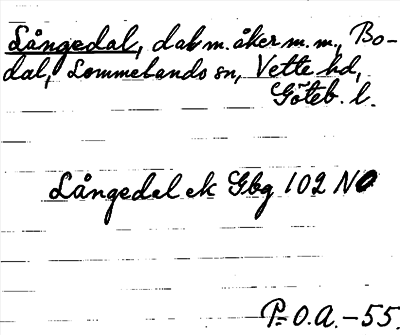 Långedal, dal m. åker m. m., Bo-
dal, Lommelands sn, Vette hd,
Göteb. l.
Långedal ek Gbg 102 NO
P.O.A.-55.